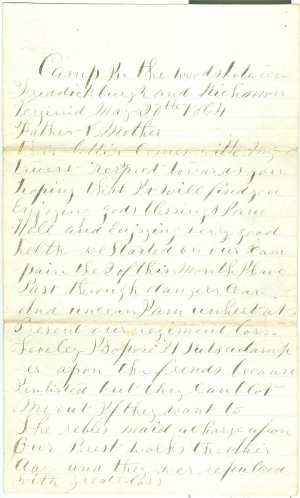 Camp In the woods between
Freddickburgh and Richamon
Verginia May 20th 1864
Father & Mother
this letter comes with my
truest respect towards you
hoping that It will find you
Enjoying gods blessings I am
Well and Enjoying very good
helth we started on our Cam
pain the 3 of this Month I have
Past through dangers Cean
And uncean I am unhert at
Present our regiment loss
I Sopose It Puts a damp
er apon the frends because
I enlisted but they Cant
Me out If they want to
The rebes maid a charge apon
Our Brest works the other
day and they wer repulced
with great loss